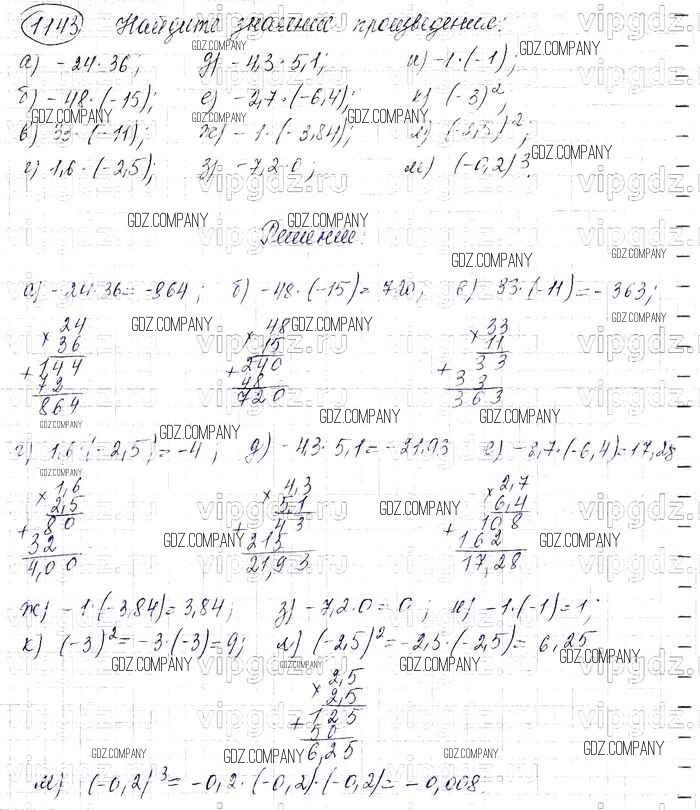 1143 Найдите значение произведение:
а) -24·36; д) -4,3·5,1; и) -1·(-1);
б) -48·(-15); е) -2,7·(-6,4); к) (-3)²;
в) 33·(-11); ж) -1·(-3,84); л) (-2,5)²;
г) 1,6·(-2,5); з) -7,2·0; м) (-0,2)³.
Решение:
а) -24·36=-864; б) -48·(-15)=720; в) 33·(-11)=-363;
24 48 33
× 36 × 15 × 11
144 240 33
+ 72 + 48 + 33
864 720 363
г) 1,6·(-2,5)=-4; д) -4,3·5,1=-21,93 е) -2,7·(-6,4)=17,28
× 1,6 × 4,3 × 2,7
2,5 5,1 6,4
+ 80 + 43 + 108
32 215 162
4,00 21,93 17,28
ж) -1·(-3,84)=3,84; з) -7,2·0=0; и) -1·(-1)=1;
к) (-3)²=-3·(-3)=9; л) (-2,5)²=-2,5·(-2,5)=6,25
× 2,5
2,5
+ 125
50
6,25
м) (-0,2)³=-0,2·(-0,2)·(-0,2)=-0,008.
GDZ.COMPANY
vipgdz.ru